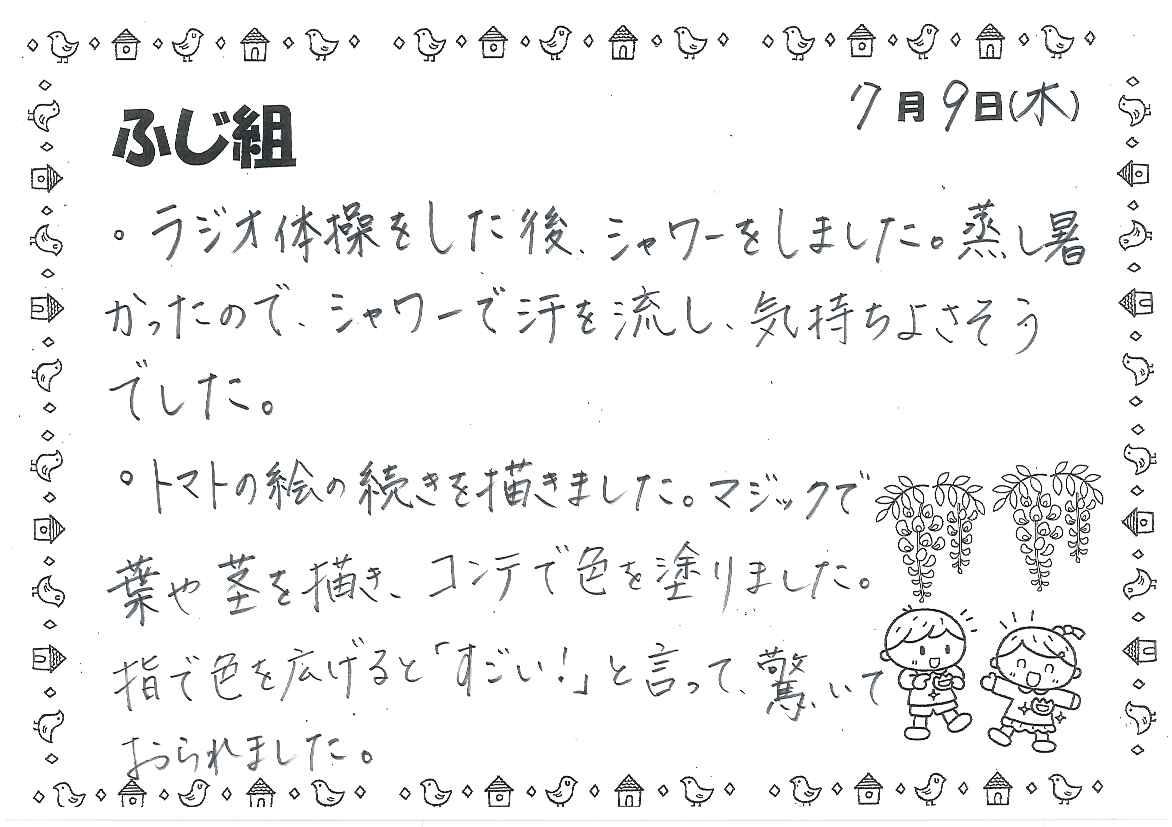 7月9日(木)
ふじ組
。ラジオ体操をした後、シャワーをしました。蒸し暑
かったので、シャワーで汗を流し、気持ちよさそう
でした。
。トマトの絵の続きを描きました。マジックで
葉や茎を描き、コンテで色を塗りました。
指で色を広げると「すごい!」と言って、驚いて
おられました。